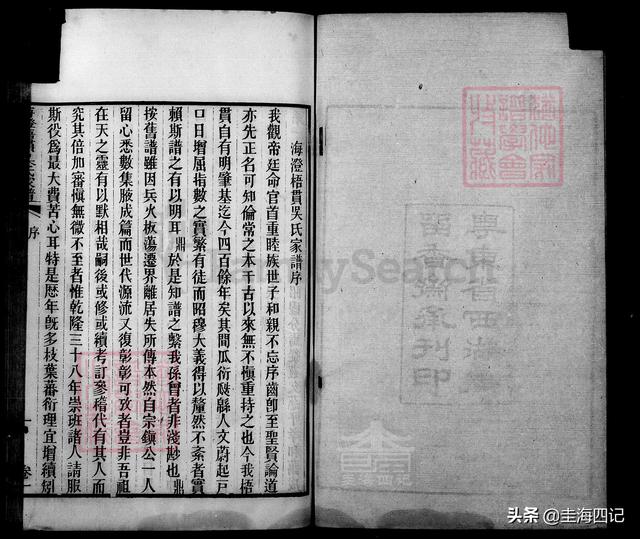 海澄梧貫吳氏家譜序
我觀帝廷命官首重睦族世子和親不忘序齒卽至聖賢論道
亦先正名可知倫常之本千古以來無不慎重持之也今我梧
貫自有明肇基迄今四百餘年矣其間瓜衍緜人文蔚起戸
口日增屈指數之實繁有徒而昭穆大義得以釐然不紊者實
賴斯譜之有以明耳鼎於是知譜之繫我孫曾者非淺尠也鼎
按舊譜雖因兵火板蕩遷界離居失所傳本然自宗鎮公一人
留心悉數集腋成篇而世代源流又復彰彰可攷者豈非吾祖
在天之靈有以默相哉嗣後或修或續考訂參稽代有其人而
究其倍加審慎無微不至者惟乾隆三十八年崇班諸人請服
斯役爲最大費苦心耳特是歷年旣多枝葉蕃衍理宜增續矧
序
卷一
粵東省西湖街
留香齋承刊印
譜學會
收藏
FamilySearch
头条 @圭海四记